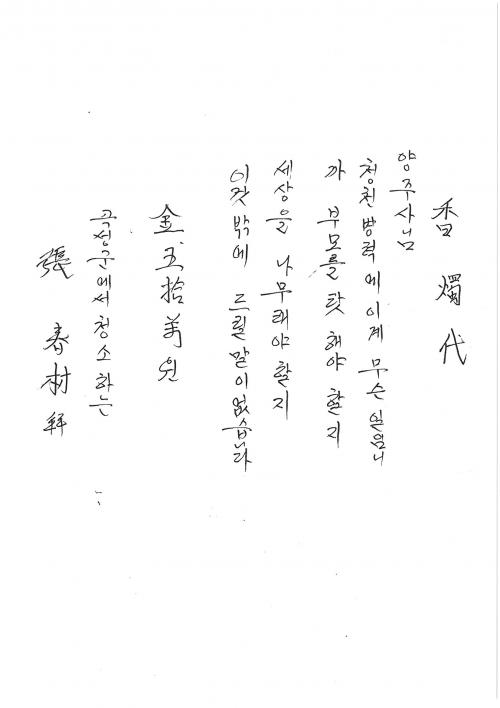 香燭代
양주사님
청천벽력에이게 무슨 일임니
까 부모를 탓 해야 할지
세상을 나무래야할지
이것 밖에 드릴말이없습니다
金五拾萬원
곡성군에서청소하는
張春村